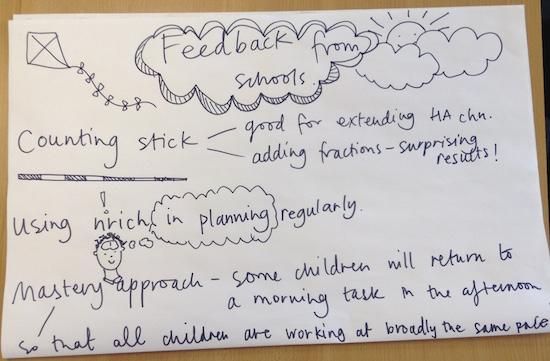 Feedback from
schools.
Counting stick
good for extending HA chn.
adding fractions - surprising
results!
!
Using nrich in planning regularly.
Mastery approach - some children will return to
a morning task in the afternoon
so that all children are working at broadly the same pace